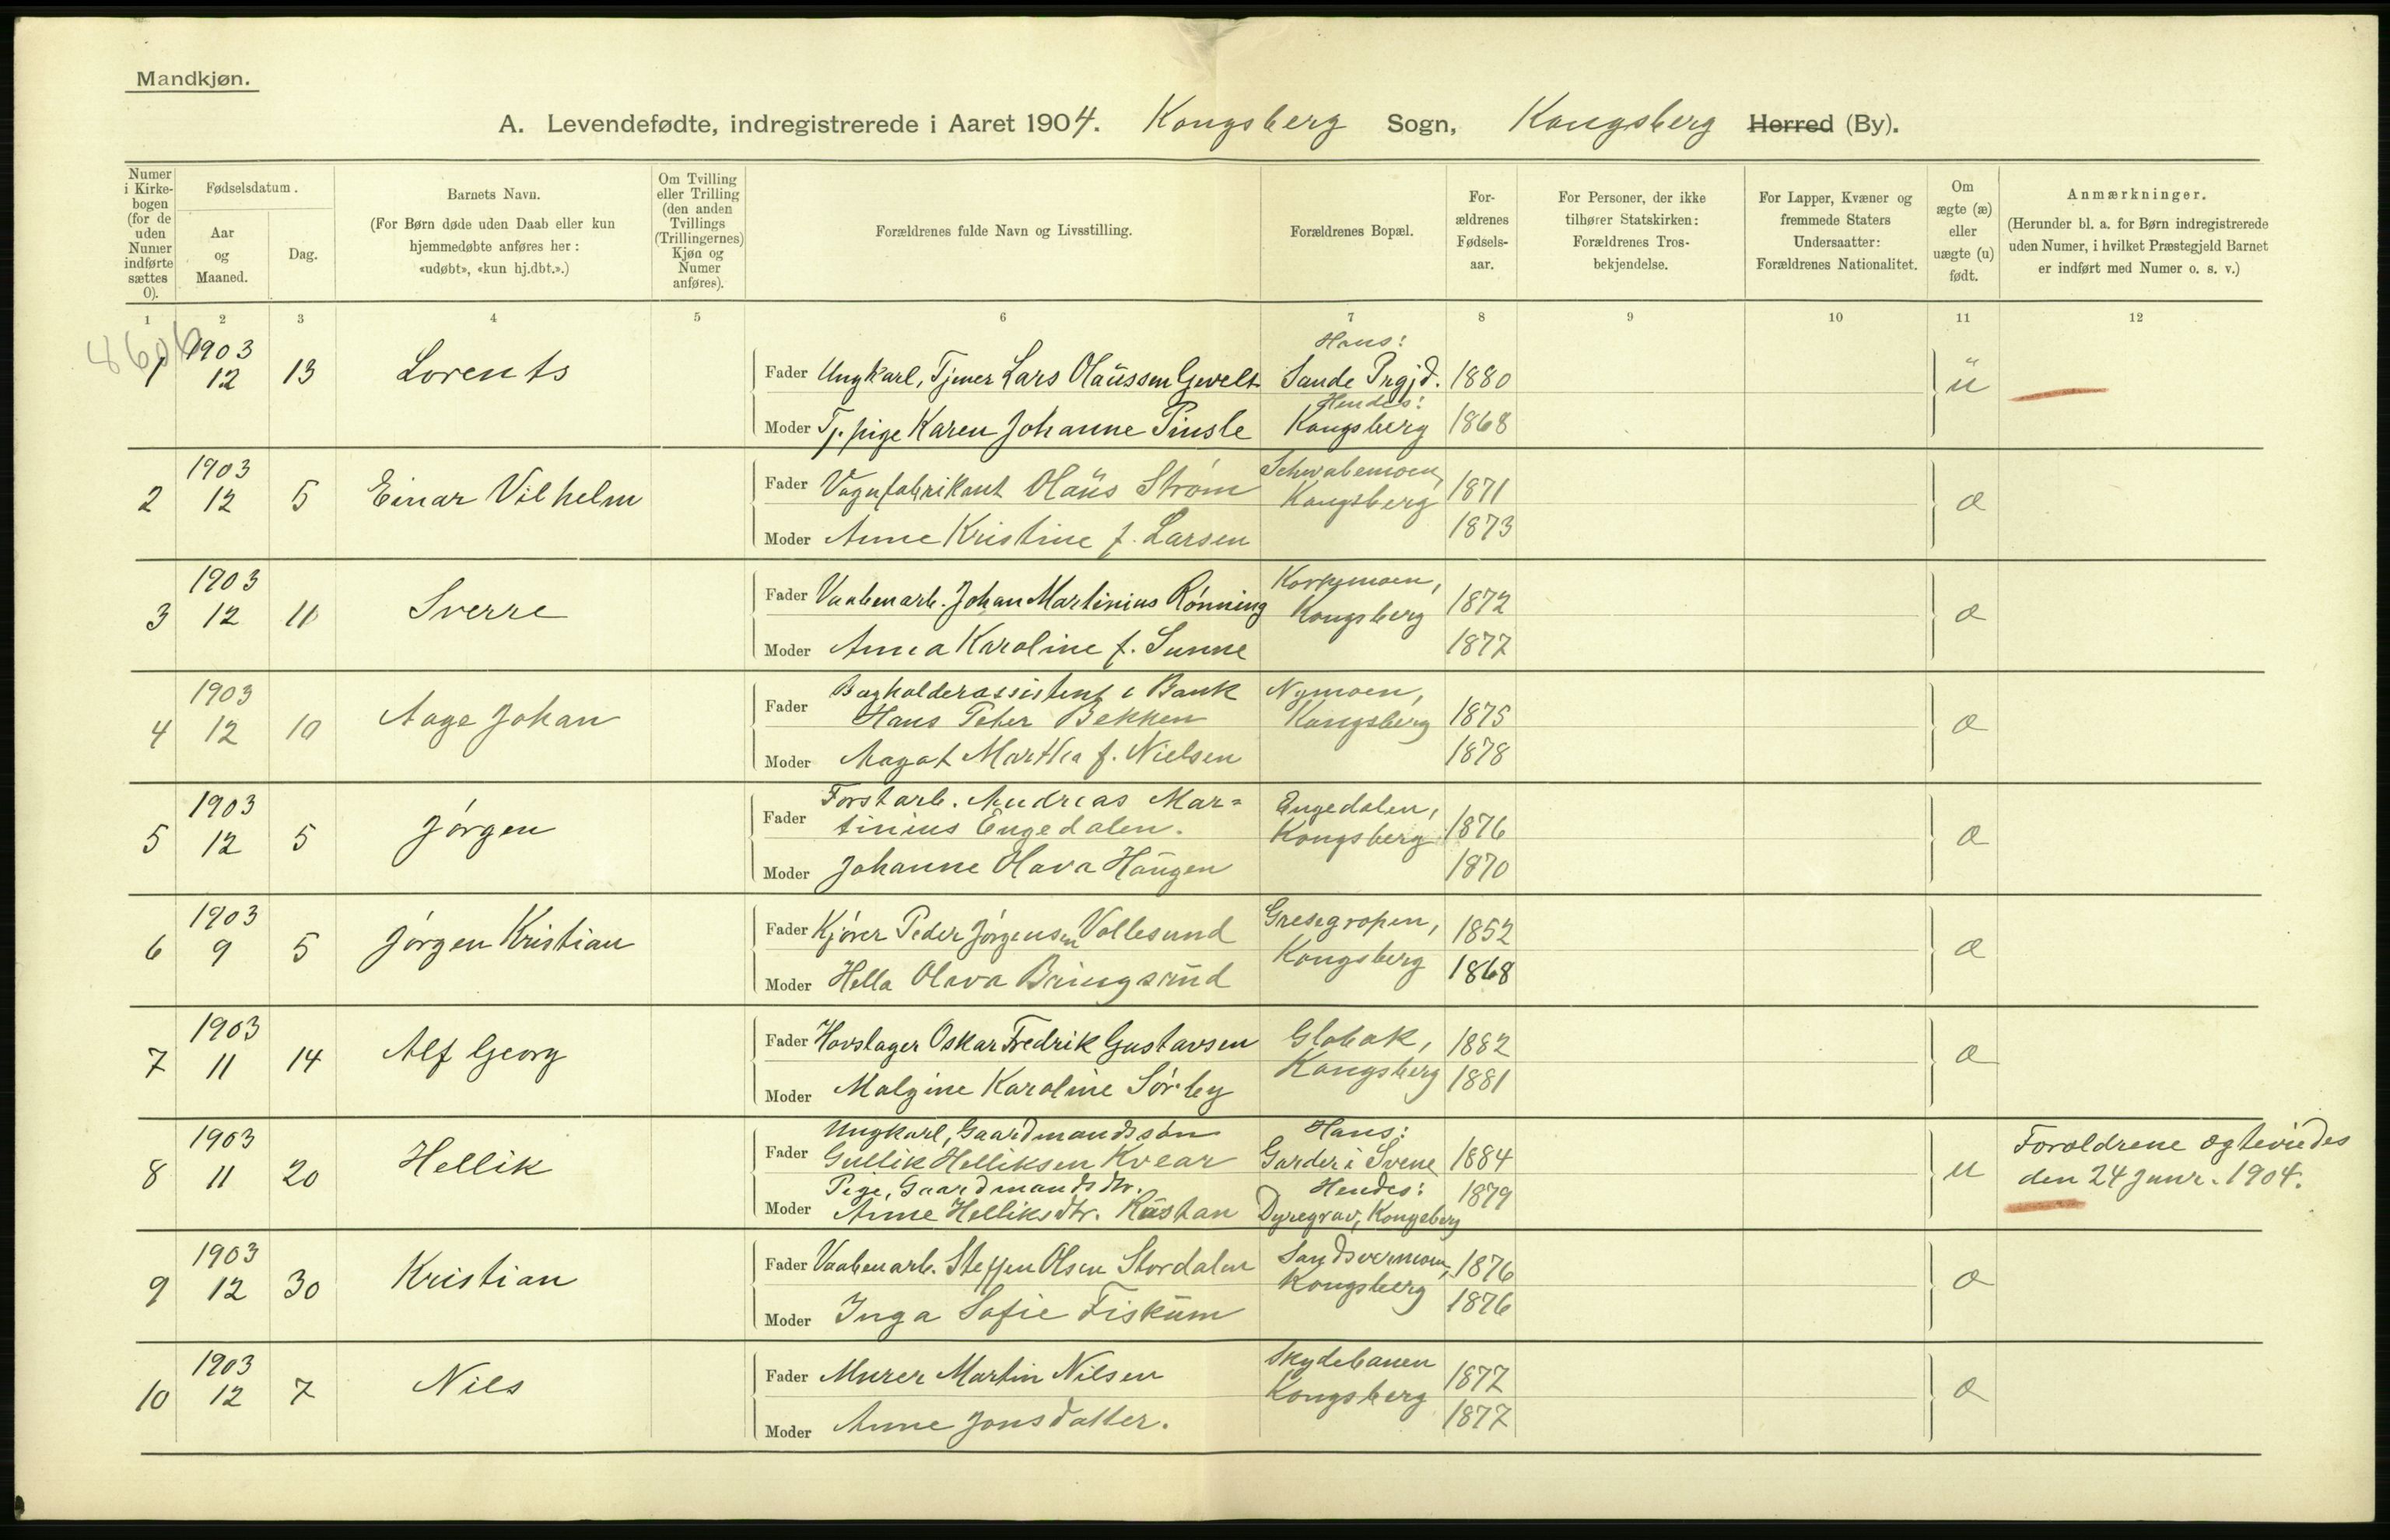 Mandkjøn.
A. Levendefødte, indregistrerede i Aaret 1904. Kongsberg Sogn, Kongsberg Herred (By).
Numer i Kirke-bogen (for de uden Numer indførte sættes 0).
Fødselsdatum.
Aar og Maaned.
Dag.
Barnets Navn.
(For Børn døde uden Daab eller kun hjemmedøbte anføres her: «udøbt», «kun hj.dbt.».)
Om Tvilling eller Trilling (den anden Tvillings (Trillingernes) Kjøn og Numer anføres).
Forældrenes fulde Navn og Livsstilling.
Forældrenes Bopæl.
For-ældrenes Fødsels-aar.
For Personer, der ikke tilhører Statskirken: Forældrenes Tros-bekjendelse.
For Lapper, Kvæner og fremmede Staters Undersaatter: Forældrenes Nationalitet.
Om ægte (æ) eller uægte (u) født.
Anmærkninger.
(Herunder bl. a. for Børn indregistrerede uden Numer, i hvilket Præstegjeld Barnet er indført med Numer o. s. v.)
1 2 3 4 5 6 7 8 9 10 11 12
1 1903 12 13 Lorents
Fader Ungkarl, Tjener Lars Olaussen Gevelt Hans: Sande Prgjd. 1880 u
Moder Tj.pige Karen Johanne Pinsle Hendes: Kongsberg 1868
2 1903 12 5 Einar Vilhelm
Fader Vognfabrikant Olaus Strøm Schwabemoen, Kongsberg 1871 æ
Moder Anne Kristine f. Larsen 1873
3 1903 12 11 Sverre
Fader Vaabenarb. Johan Martinius Rønning Korpemoen, Kongsberg 1872 æ
Moder Anna Karoline f. Sunne 1877
4 1903 12 10 Aage Johan
Fader Bogholderassistent i Bank Hans Peter Bekken Nymoen, Kongsberg 1875 æ
Moder Magat Marthea f. Nielsen 1878
5 1903 12 5 Jørgen
Fader Forstarb. Andreas Mar=
tinius Engedalen. Engedalen, Kongsberg 1876 æ
Moder Johanne Olava Haugen 1870
6 1903 9 5 Jørgen Kristian
Fader Kjører Peder Jørgensen Vollesund Gresegropen, Kongsberg 1852 æ
Moder Hella Olava Bringsrud 1868
7 1903 11 14 Alf Georg
Fader Hovslager Oskar Fredrik Gustavsen Glabak, Kongsberg 1882 æ
Moder Malgine Karoline Sørby 1881
8 1903 11 20 Hellik
Fader Ungkarl, Gaardmandssøn Gullik Helliksen Kvear Hans: Garder i Svene 1884 u Forældrene ægteviedes
den 24 Janr. 1904.
Moder Pige, Gaardmandsdtr. Anne Helliksdtr. Rustan Hendes: Dyregrav, Kongsberg 1879
9 1903 12 30 Kristian
Fader Vaabenarb. Steffen Olsen Stordalen Sandsværmoen, Kongsberg 1876 æ
Moder Inga Sofie Fiskum 1876
10 1903 12 7 Nils
Fader Murer Martin Nilsen Skydebanen Kongsberg 1877 æ
Moder Anne Jonsdatter. 1877